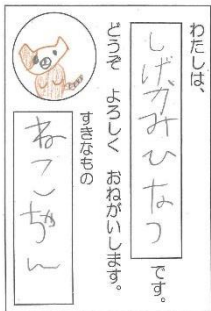 わたしは、
しげかみひなつ
です。
どうぞ よろしく おねがいします。
すきなもの
ねこちゃん